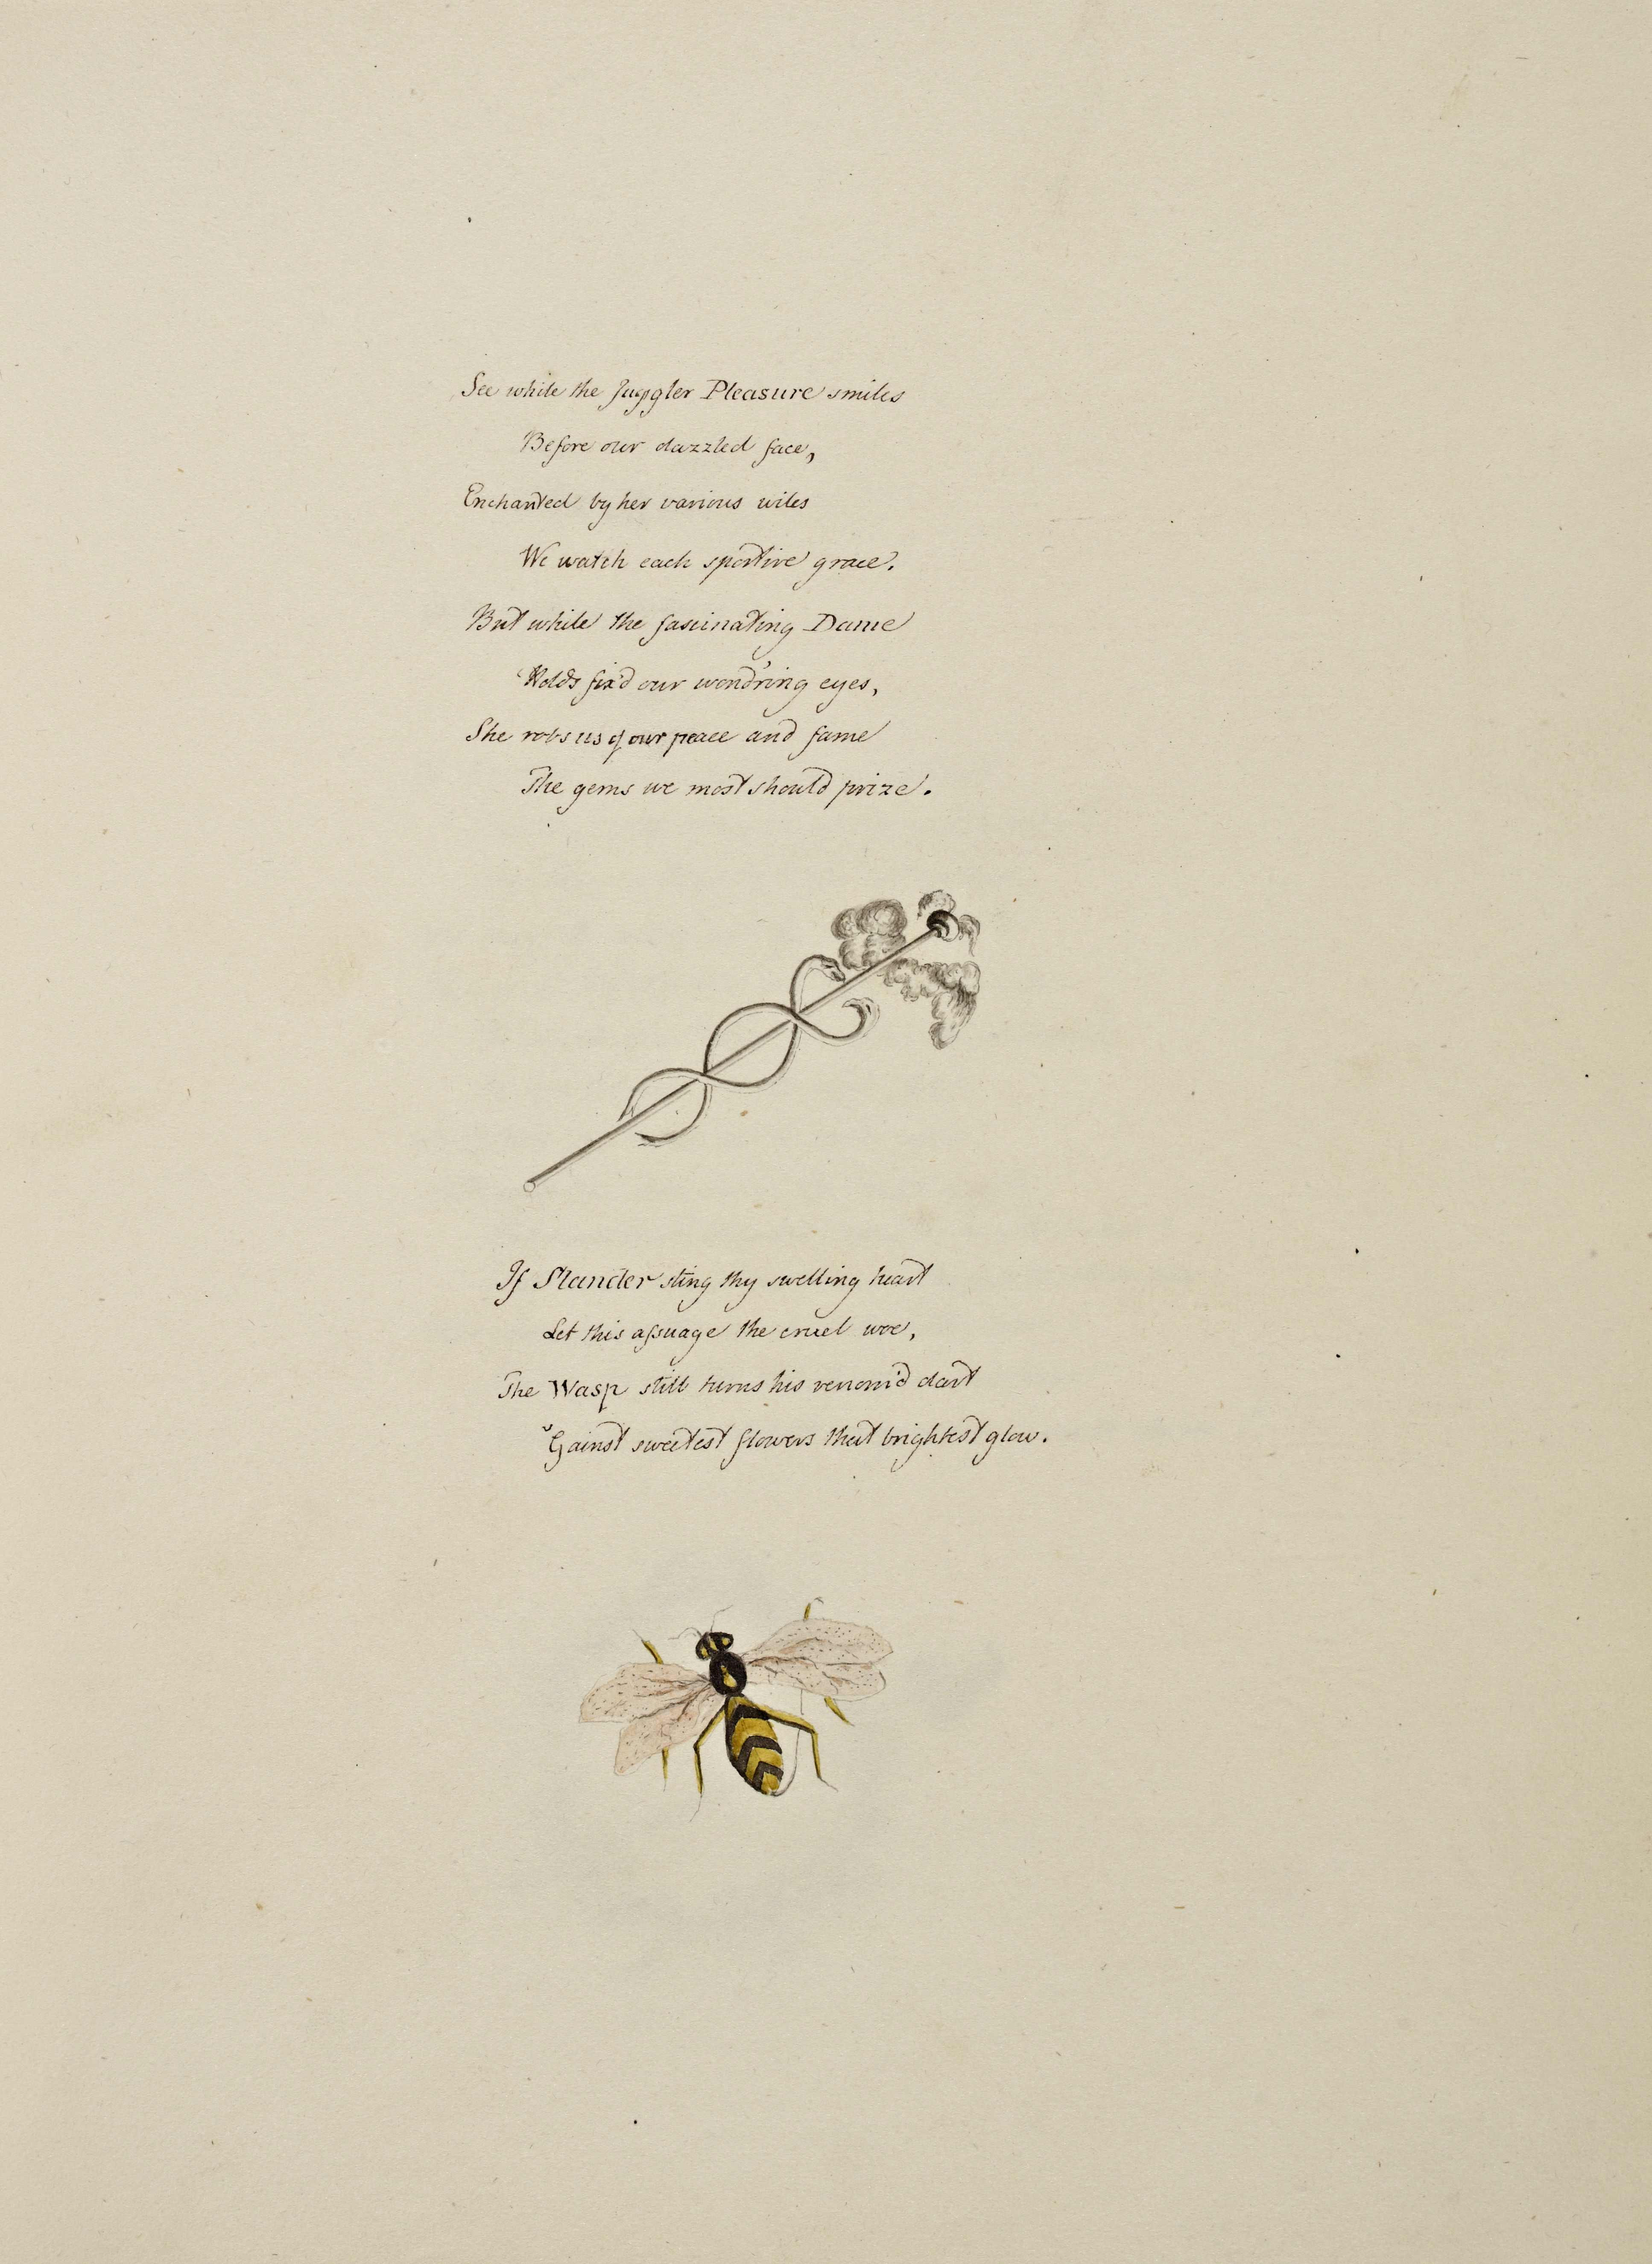 See while the Juggler Pleasure smiles
Before our dazzled face,
Enchanted by her various wiles
We watch each sportive grace.
But while the fascinating Dame
Holds fix'd our wond'ring eyes,
She robs us of our peace and fame
The gems we most should prize.
If Slander sting thy swelling heart
Let this aſsuage the cruel woe,
The Wasp still turns his venom'd dart
'Gainst sweetest flowers that brightest glow.